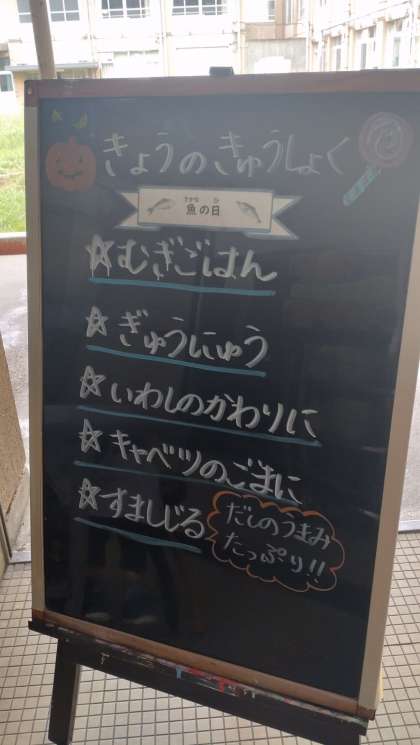 きょうのきゅうしょく
さかな ひ
魚の日
☆むぎごはん
☆ぎゅうにゅう
☆いわしのかわりに
☆キャベツのごまに
☆すましじる
だしのうまみ
たっぷり!!